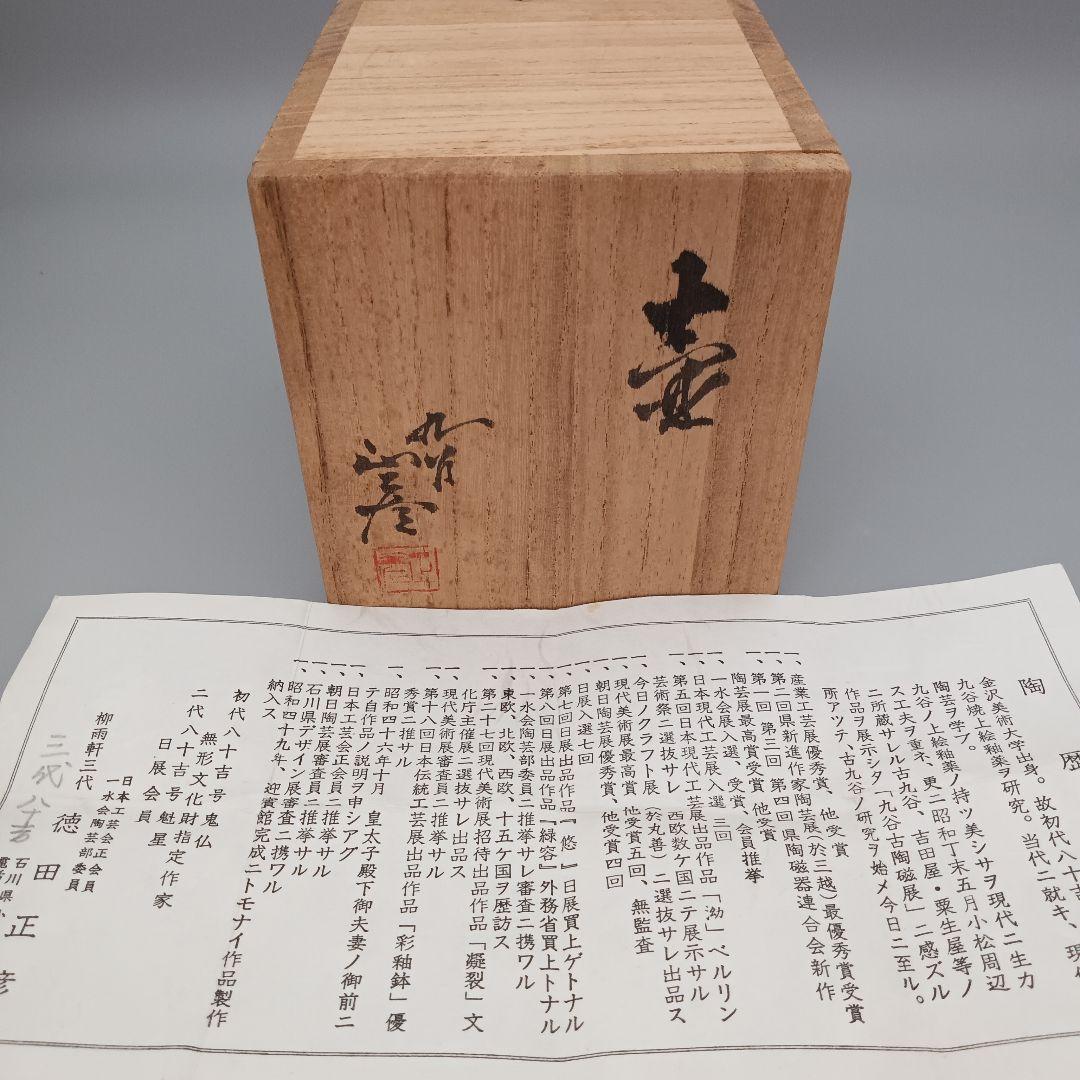 壷
九谷
正彦
陶歴
金沢美術大学出身。故初代八十吉
九谷焼上絵釉薬ヲ研究。当代ニ就キ、現代
陶芸ヲ学フ。
九谷ノ上絵釉薬ノ持ツ美シサヲ現代ニ生カ
ス工夫ヲ重ネ、更ニ昭和丁末五月小松周辺
ニ所蔵サレル古九谷、吉田屋・粟生屋等ノ
作品ヲ展示シタ「九谷古陶磁展」ニ感ズル
所アツテ、古九谷ノ研究ヲ始メ今日ニ至ル。
一、産業工芸展優秀賞、他受賞
一、第二回県新進作家陶芸展(於三越)最優秀賞受賞
一、第一回 第三回 第四回県陶磁器連合会新作
陶芸展最高賞受賞 他受賞
一、一水会展入選、受賞、会員推挙
一、日本現代工芸展入選三回
一、第五回日本現代工芸展出品作品「泑」ベルリン
芸術祭ニ選抜サレ 西欧数ケ国ニテ展示サル
一、今日ノクラフト展(於丸善)ニ選抜サレ出品ス
一、現代美術展最高賞 他受賞五回、無監査
一、朝日陶芸展優秀賞、他受賞四回
一、日展入選七回
一、第七回日展出品作品『悠』日展買上ゲトナル
一、第八回日展出品作品『緑容』外務省買上トナル
一、一水会陶芸部委員ニ推挙サレ審査ニ携ワル
一、東欧、北欧、西欧、十五ケ国ヲ歴訪ス
一、第二十七回現代美術展招待出品作品「凝裂」文
化庁主催展ニ選抜サレ出品ス
一、現代美術展審査員ニ推挙サル
一、第十八回日本伝統工芸展出品作品「彩釉鉢」優
秀賞ニ推サル
一、昭和四十六年十月 皇太子殿下御夫妻ノ御前ニ
テ自作品ノ説明ヲ申シアグ
一、日本工芸会正会員ニ推挙サル
一、朝日陶芸展審査員ニ推挙サル
一、石川県デザイン展審査ニ携ワル
一、昭和四十九年、迎賓館完成ニトモナイ作品製作
納入ス
初代八十吉号鬼仏
二代 無形文化財指定作家
八十吉号魁星
日展会員
日本工芸会正会員
一水会陶芸部委員
柳雨軒三代 徳田正彦
石川県小
三代八十吉